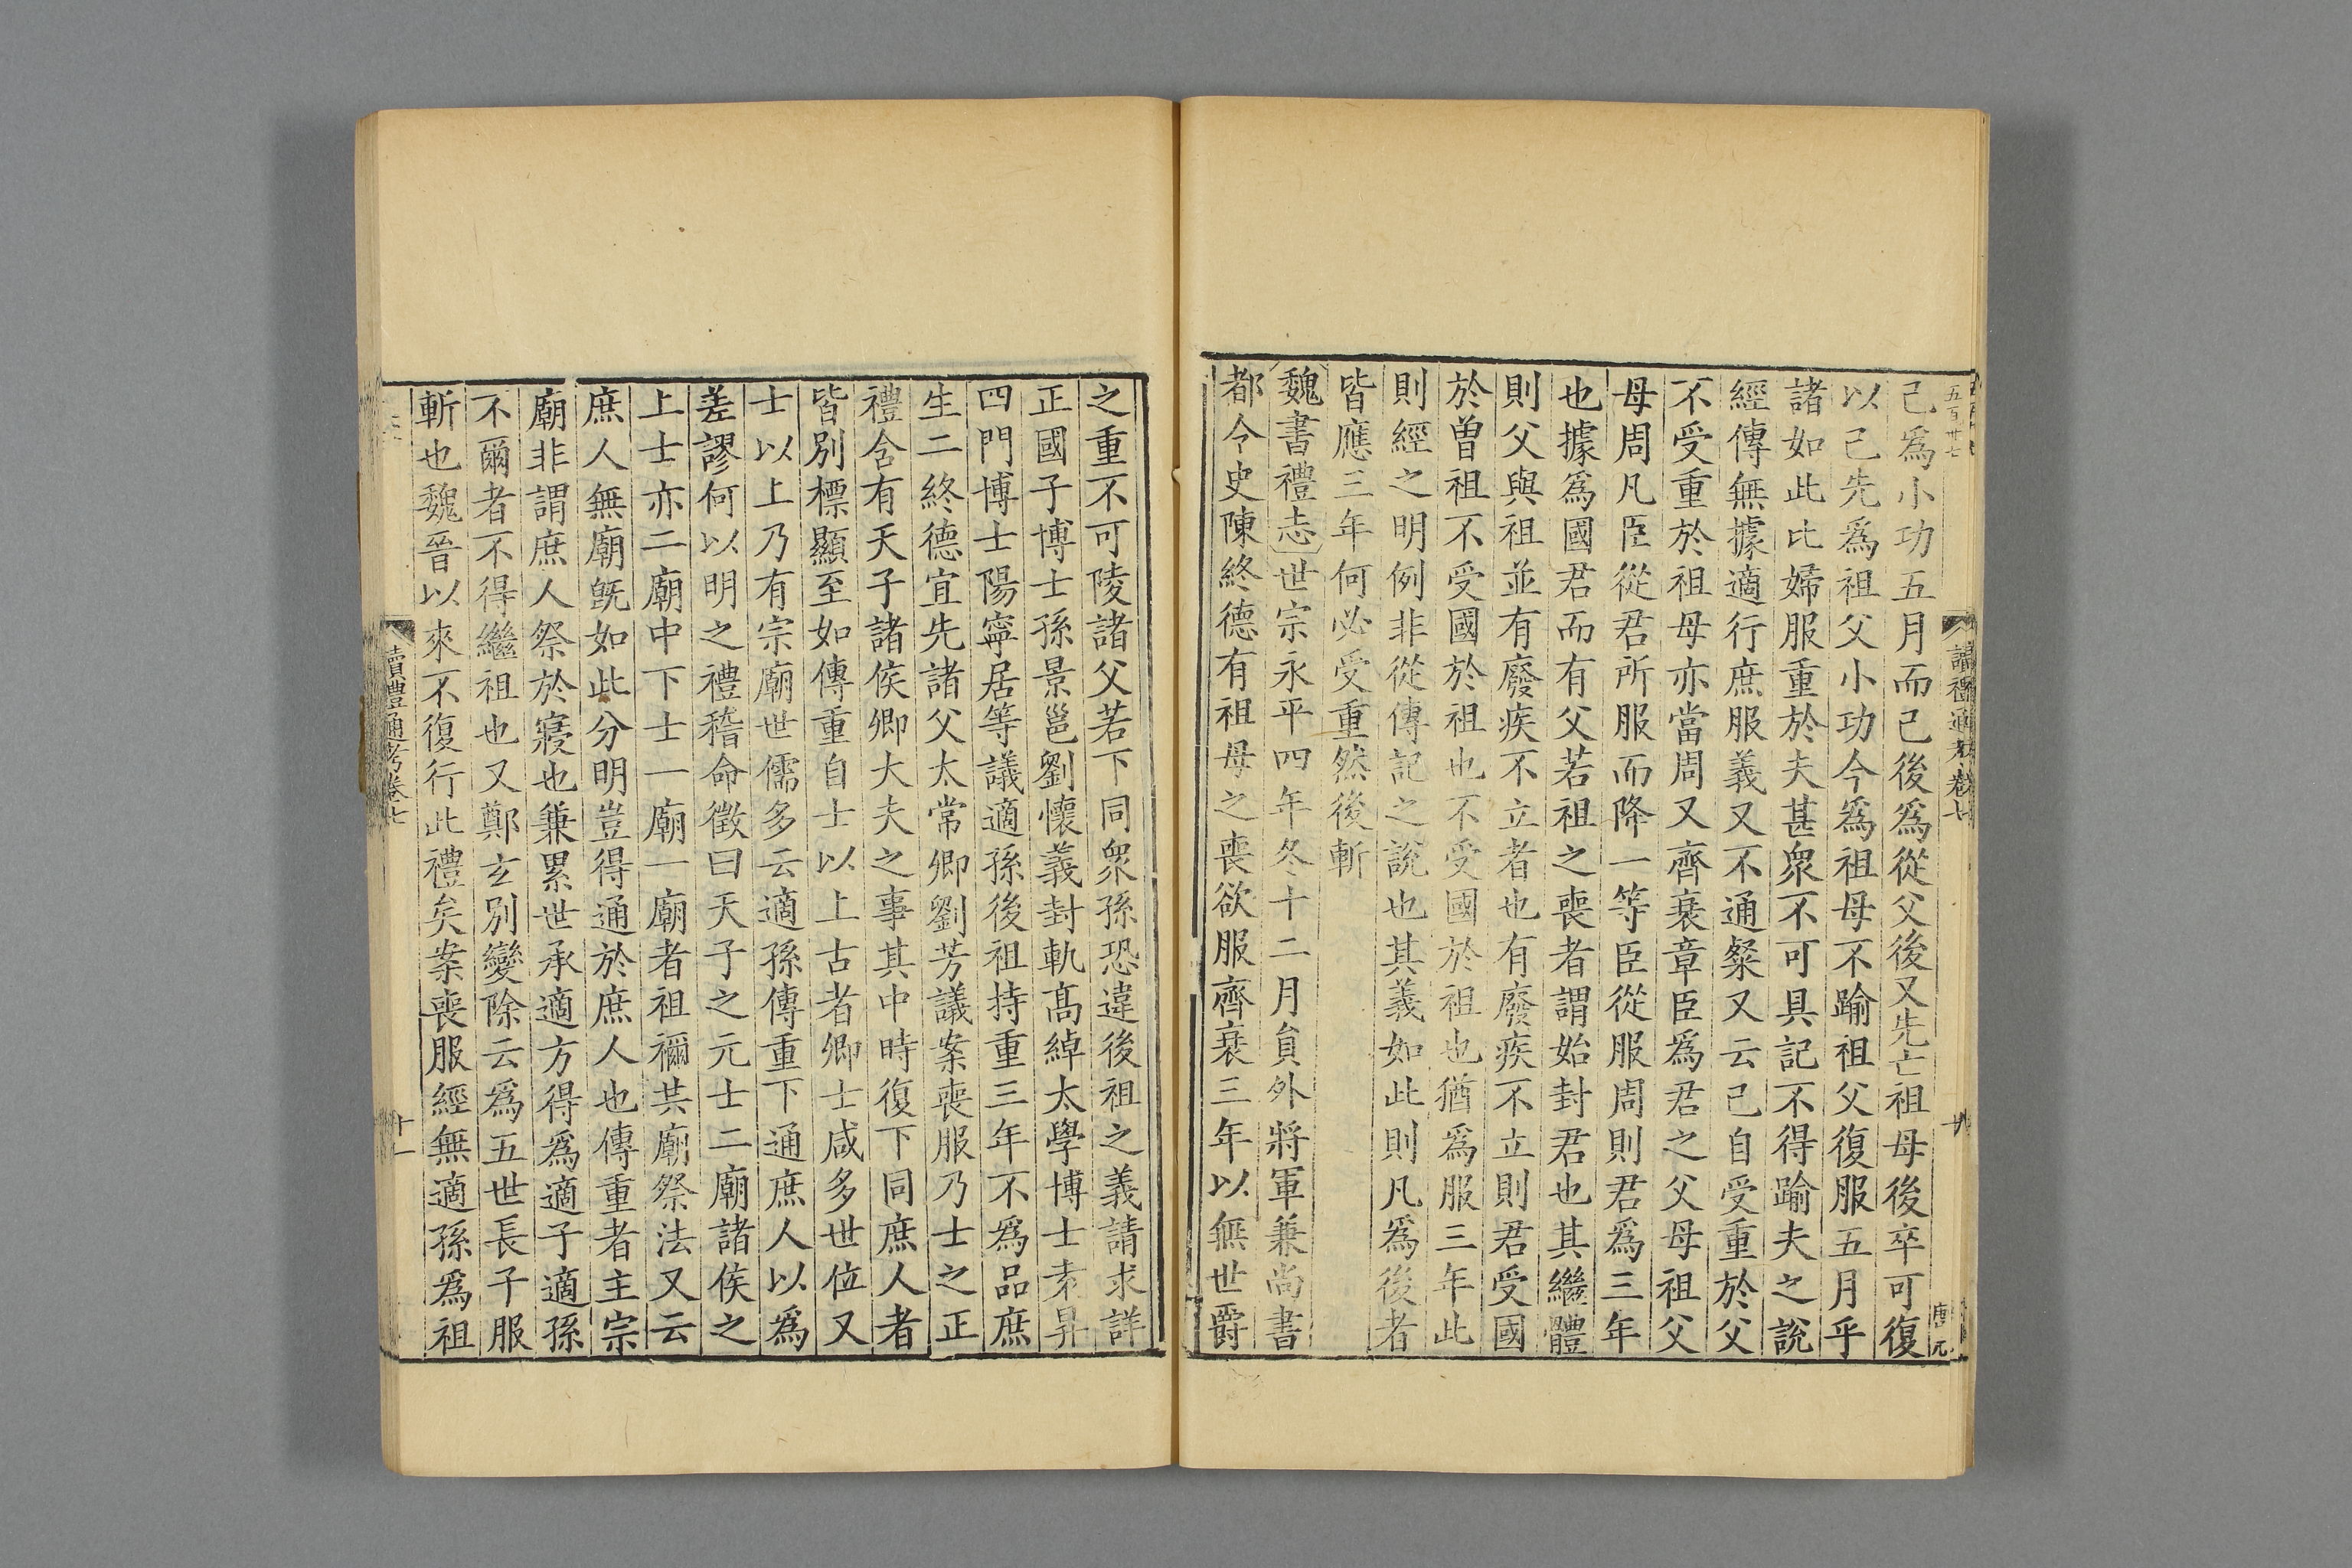 五百廿七
讀禮通考卷七
唐元
己爲小功五月而已後爲從父後又先亡祖母後卒可復
以己先爲祖父小功今爲祖母不踰祖父復服五月乎
諸如此比婦服重於夫甚衆不可具記不得踰夫之說
經傳無據適行庶服義又不通粲又云己自受重於父
不受重於祖母亦當周又齊衰章臣爲君之父母祖父
母周凡臣從君所服而降一等臣從服周則君爲三年
也據爲國君而有父若祖之喪者謂始封君也其繼體
則父與祖並有廢疾不立者也有廢疾不立則君受國
於曾祖不受國於祖也不受國於祖也猶爲服三年此
則經之明例非從傳記之說也其義如此則凡爲後者
皆應三年何必受重然後斬
魏書禮志世宗永平四年冬十二月員外將軍兼尚書
都令史陳終德有祖母之喪欲服齊衰三年以無世爵
之重不可陵諸父若下同衆孫恐違後祖之義請求詳
正國子博士孫景邕劉懷義封軌髙綽太學博士袁昇
四門博士陽寧居等議適孫後祖持重三年不爲品庶
生二終德宜先諸父太常卿劉芳議案喪服乃士之正
禮含有天子諸侯卿大夫之事其中時復下同庶人者
皆別標顯至如傳重自士以上古者卿士咸多世位又
士以上乃有宗廟世儒多云適孫傳重下通庶人以爲
差謬何以明之禮稽命徵曰天子之元士二廟諸侯之
上士亦二廟中下士一廟一廟者祖禰共廟祭法又云
庶人無廟旣如此分明豈得通於庶人也傳重者主宗
廟非謂庶人祭於寢也兼累世承適方得爲適子適孫
不爾者不得繼祖也又鄭玄別變除云爲五世長子服
斬也魏晉以來不復行此禮矣案喪服經無適孫爲祖
讀禮通考卷七
十一